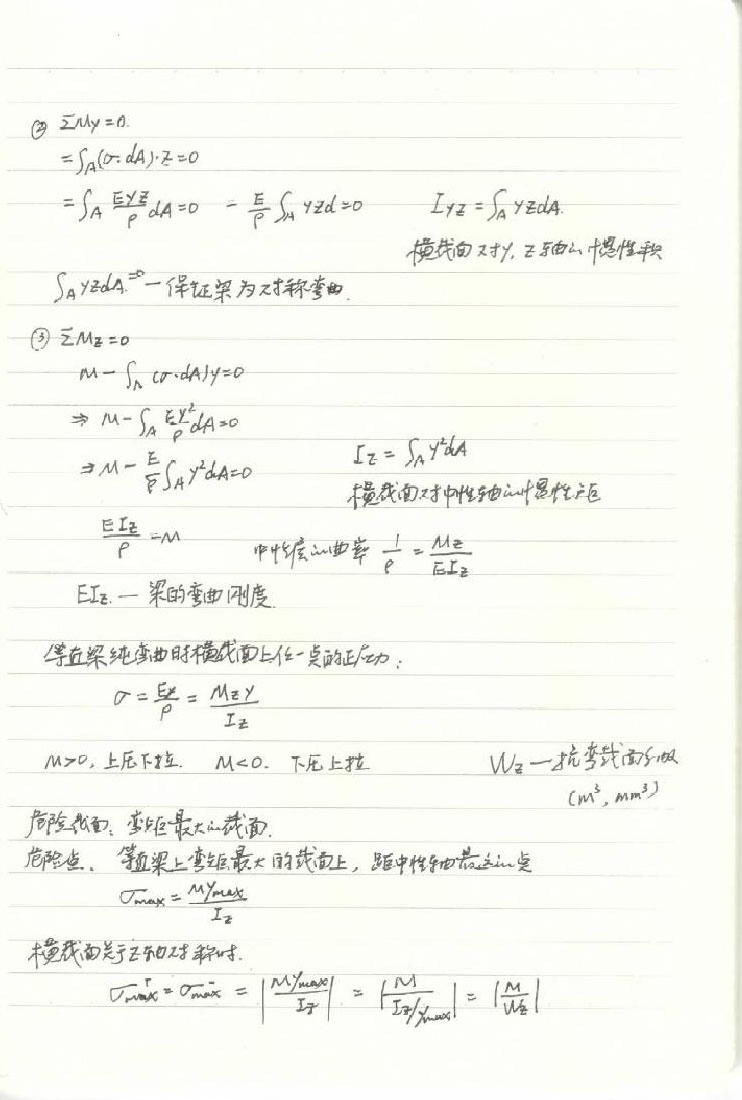 ② ΣMy=0.
=∫A(σ·dA)·z=0
=∫A Eyz/ρ dA=0 = E/ρ ∫A yzd=0 Iyz=∫A yzdA.
横截面对y,z轴的惯性积
∫A yzdA=0 — 保证梁为对称弯曲.
③ ΣMz=0
M-∫A(σ·dA)y=0
⇒ M-∫A Ey²/ρ dA=0
⇒ M-E/ρ ∫A y²dA=0 Iz=∫A y²dA
横截面对中性轴的惯性矩
EIz/ρ=M 中性层的曲率 1/ρ=Mz/EIz
EIz.— 梁的弯曲刚度.
等直梁纯弯曲时横截面上任一点的正应力:
σ=Ey/ρ=Mzy/Iz
M>0,上压下拉. M<0. 下压上拉 Wz—抗弯截面
(m³, mm³)
危险截面:弯矩最大的截面.
危险点. 等直梁上弯矩最大的截面上,距中性轴最远的点
σmax=Mymax/Iz
横截面关于z轴对称时.
σ⁺max=σ⁻max=|Mymax/Iz|=|M/(Iz/ymax)|=|M/Wz|